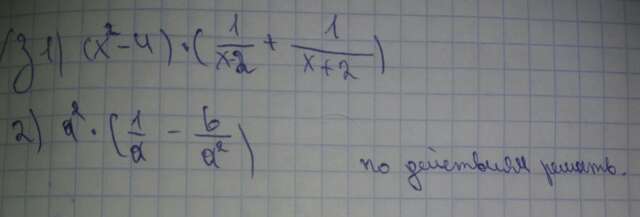 (З 1) (x² - 4) · (1/(x-2) + 1/(x+2))
2) a² · (1/a - b/a²)
по действиям решать.